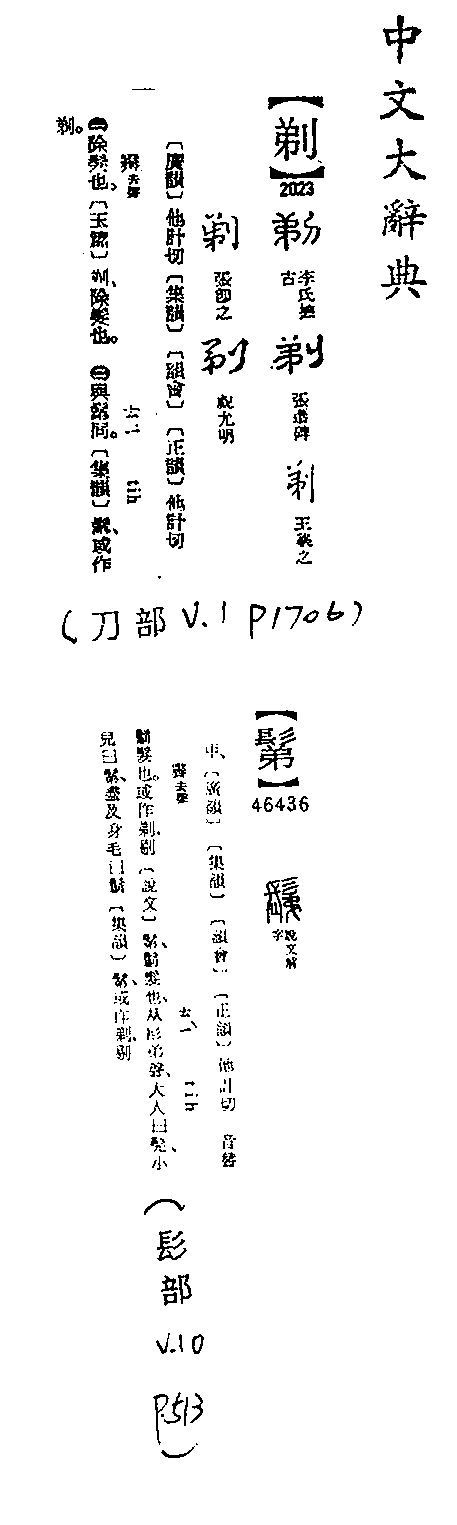 中文大辭典
【剃】
2023
剃 李氏摭古
剃 張遷碑
剃 王羲之
剃 張即之
剃 祝允明
〔廣韻〕他計切〔集韻〕〔韻會〕〔正韻〕他計切
霽去聲 ㄊㄧˋ tih
㊀除髮也、〔玉篇〕剃、除髮也。 ㊁與鬀同。〔集韻〕鬀、或作
剃。
(刀部 V.1 P1706)
【鬀】
46436
說文解字
〔廣韻〕〔集韻〕〔韻會〕〔正韻〕他計切 音替
霽去聲 ㄊㄧˋ tih
鬄髮也。或作剃、剔〔說文〕鬀、鬄髮也、从髟弟聲、大人曰髡、小
兒曰鬀、盡及身毛曰鬄〔集韻〕鬀、或作剃、剔
(髟部 V.10 P.513)